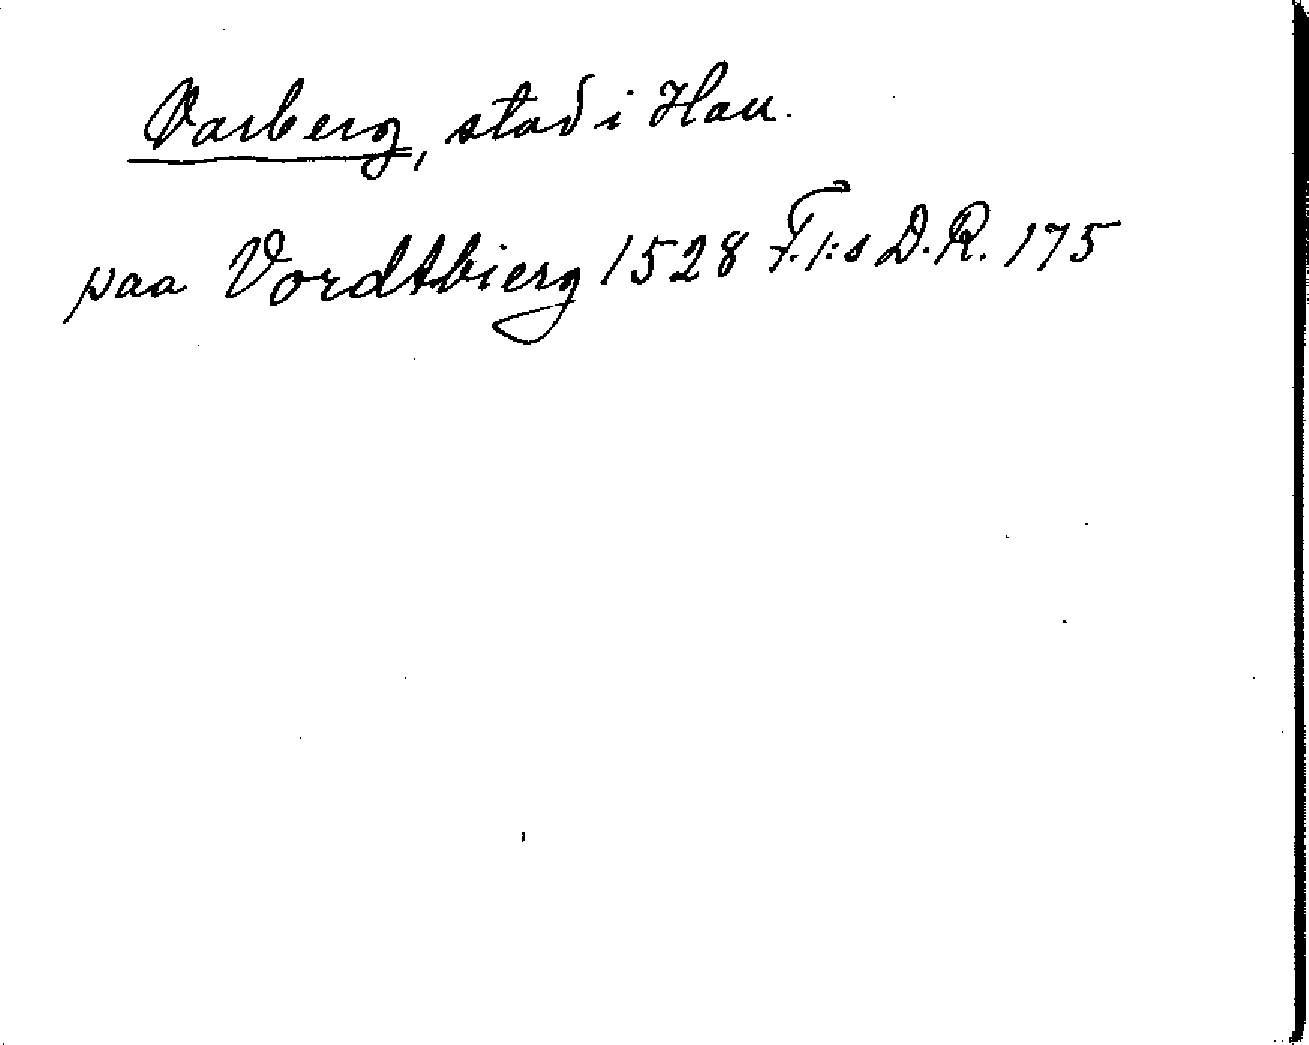 Varberg, stad i Hall.
paa Vordtbierg 1528 F. I:s D.R. 175